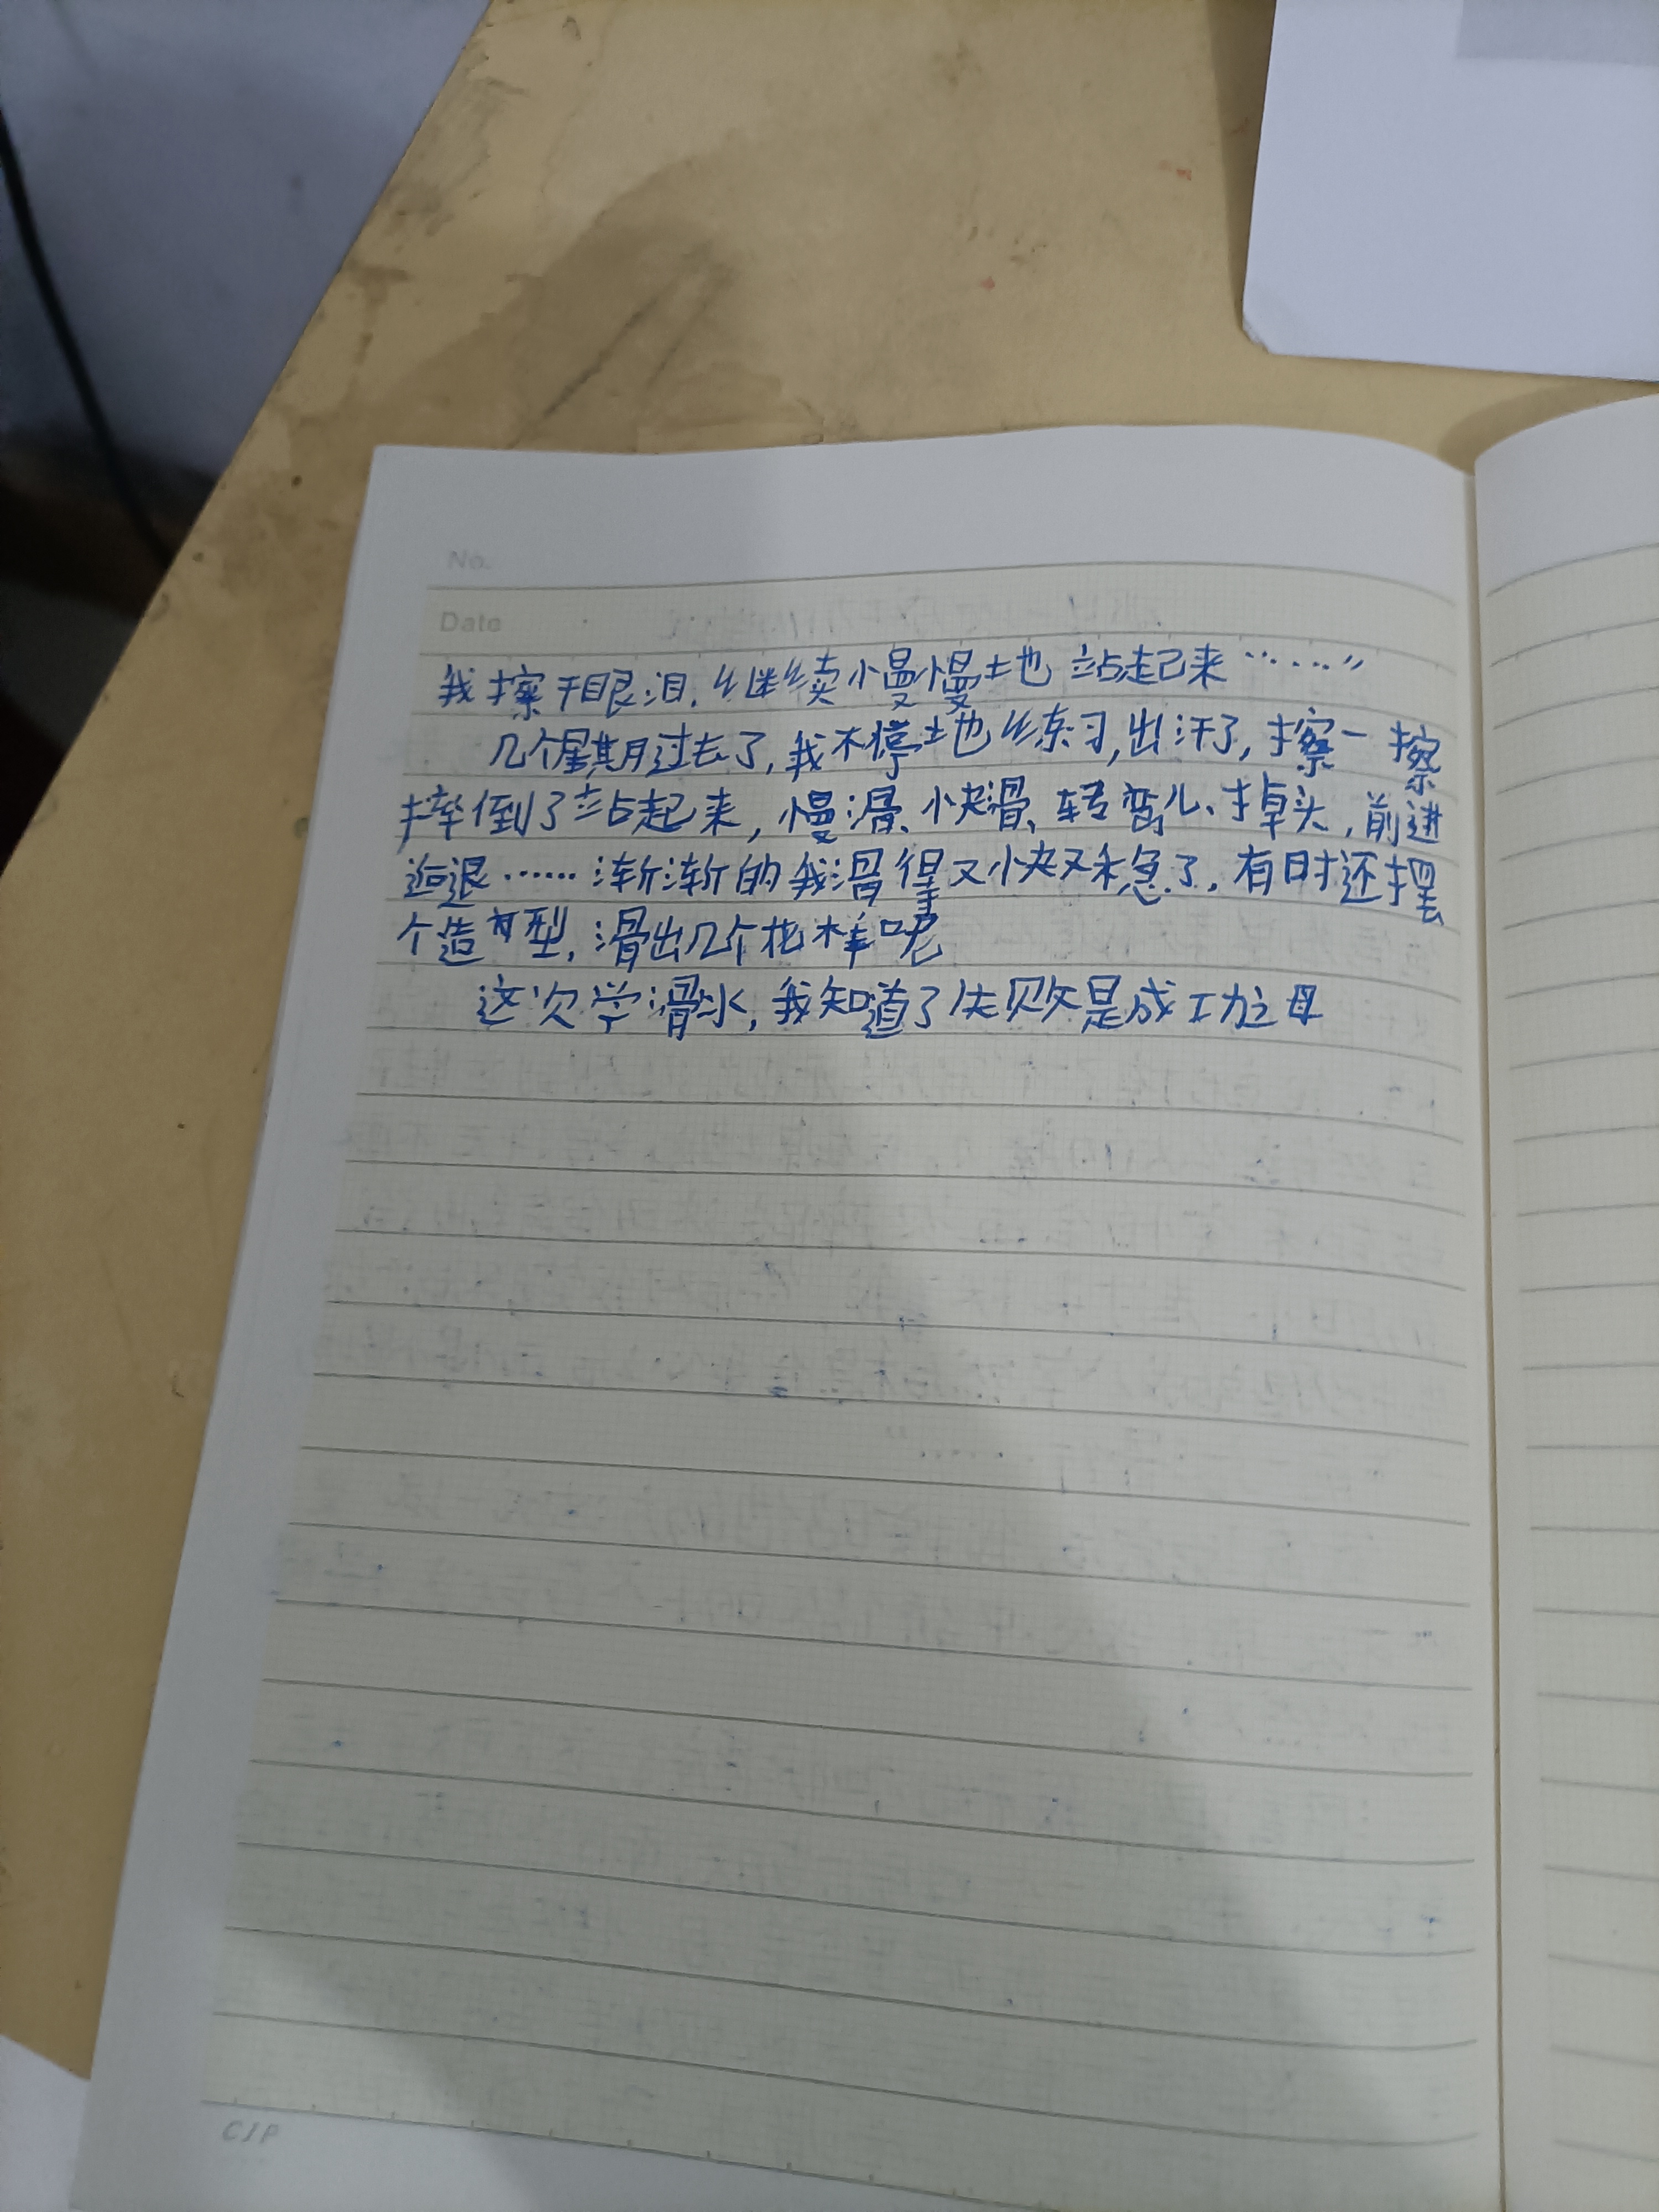 No.
Date
我擦干眼泪，继续慢慢地 站起来……”
几个星期过去了，我不停地练习，出汗了，擦一擦
摔倒了站起来，慢滑、快滑、转弯儿、掉头，前进
后退……渐渐的我滑得又快又稳了，有时还摆
个造型，滑出几个花样呢
这次学滑冰，我知道了失败是成功之母
CJP